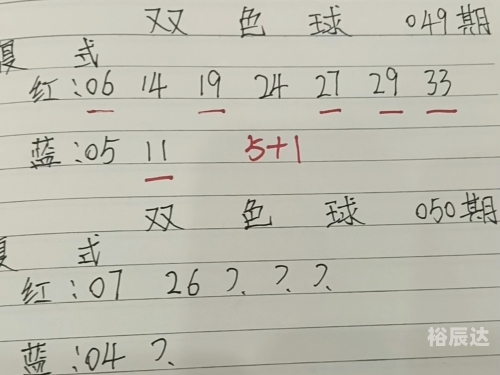 双 色 球 049期
复 式
红:06 14 19 24 27 29 33
蓝:05 11 5+1
双 色 球 050期
复 式
红:07 26 ? ? ?
蓝:04 ?
裕辰达